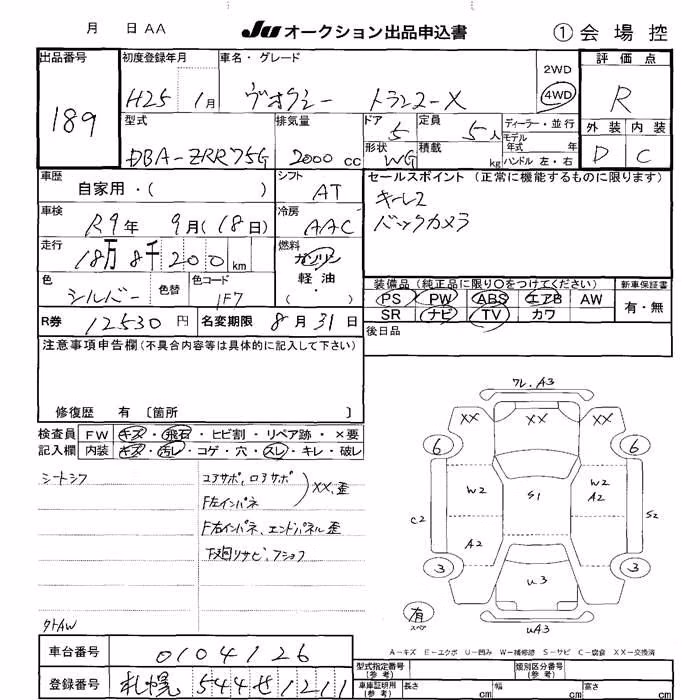 月 日 AA JU オークション出品申込書 ① 会場控
出品番号 初度登録年月 車名・グレード 2WD 評価点
189 H25 1月 ヴォクシー トランス-X 4WD R
型式 排気量 ドア 5 定員 5人 ディーラー・並行 外装 内装
DBA-ZRR75G 2000cc 形状 WG 積載 kg モデル年式 年 D C
ハンドル 左・右
車歴 シフト セールスポイント (正常に機能するものに限ります)
自家用・( ) AT キーレス
車検 冷房 バックカメラ
R9年 9月(18日) AAC
走行 燃料
18万8千200km ガソリン
軽・油
( )
色 シルバー 色替 色コード 1F7
装備品 (純正品に限り○をつけてください) 新車保証書
PS PW ABS エアB AW 有・無
SR ナビ TV カワ
R券 12530円 名変期限 8月31日 後日品
注意事項申告欄(不具合内容等は具体的に記入して下さい)
修復歴 有 〔箇所 〕
ワレ.A3
検査員 FW キズ・飛石・ヒビ割・リペア跡・×要
記入欄 内装 キズ・汚レ・コゲ・穴・スレ・キレ・破レ
XX XX XX
6 6
シートシワ コアサポ,ロアサポ XX,歪
F左インパネ
W2 S1 W2 A2
F右インパネ、エンドパネル歪
C2 S2
下廻リサビ、アショフ
A2
3 3
U3
有 スペア
UA3
外トAW
A-キズ E-エクボ U-凹み W-補修跡 S-サビ C-腐食 XX-交換済
車台番号 0104126
型式指定番号(参考) 類別区分番号(参考)
登録番号 札幌 544せ1211
車庫証明用(参考) 長さ cm 幅 cm 高さ cm